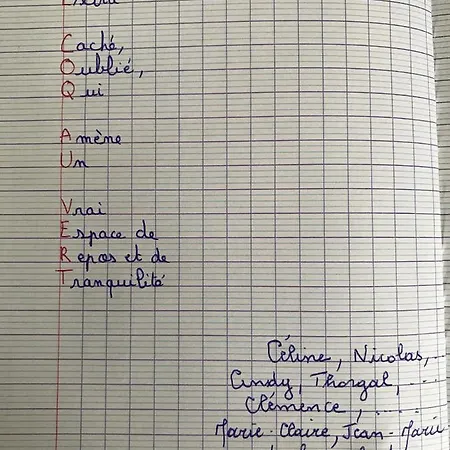 Caché,
Oublié,
Qui
Amène
Un
Vrai
Espace de
Repos et de
Tranquilité
Céline, Nicolas, ..
Cindy, Thorgal, ....
Clémence, ....
Marie-Claire, Jean-Marie